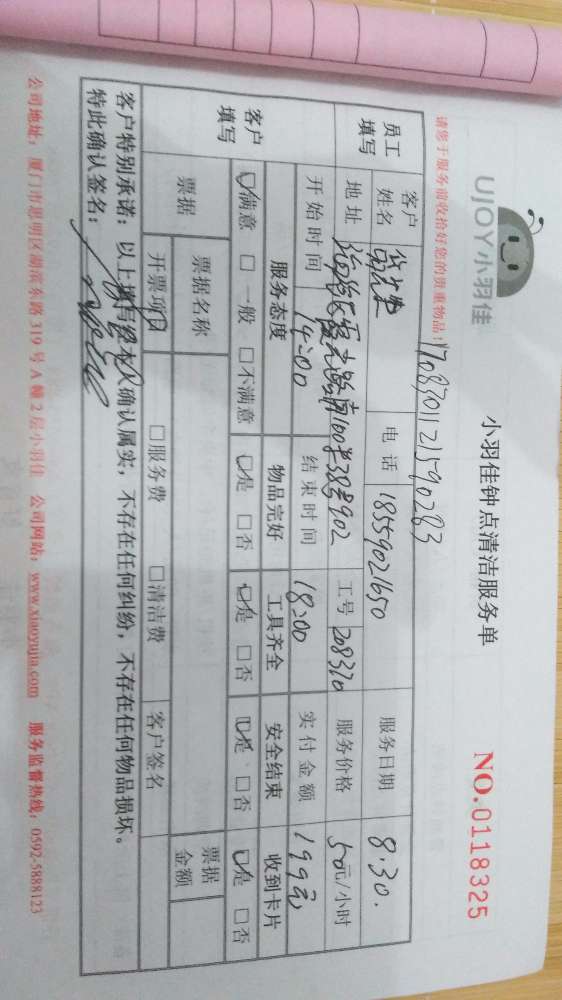 UJOY小羽佳
小羽佳钟点清洁服务单
NO.0118325
请您于服务前收拾好您的贵重物品!
员工填写
客户姓名
电话 18559021650
服务日期 8.30.
地址
38号902
工号 208370
服务价格 50元/小时
开始时间 14:00
结束时间 18:00
实付金额 199元
客户填写
服务态度 物品完好 工具齐全 安全结束 收到卡片
☑满意 □一般 □不满意 ☑是 □否 ☑是 □否 ☑是 □否 ☑是 □否
票据 票据名称 票据金额
开票项目 □服务费 □清洁费 客户签名
客户特别承诺:以上填写经本人确认属实,不存在任何纠纷,不存在任何物品损坏。
特此确认签名:
公司地址:厦门市思明区湖滨东路319号A幢2层小羽佳 公司网站:www.xiaoyujia.com 服务监督热线:0592-5888123